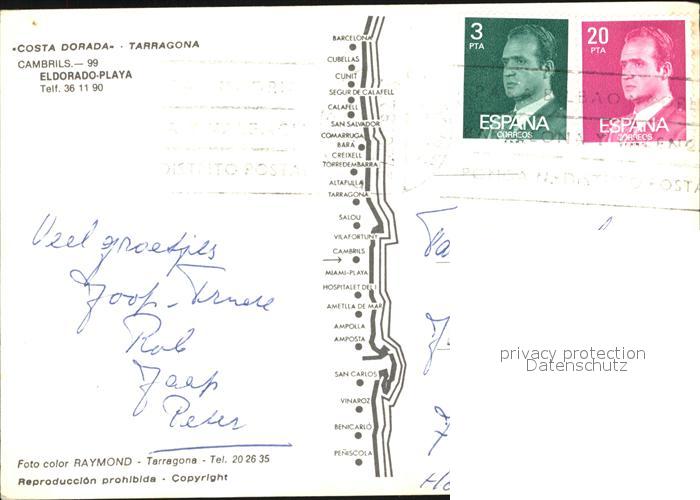 «COSTA DORADA» - TARRAGONA
CAMBRILS.— 99
ELDORADO-PLAYA
Telf. 36 11 90
BARCELONA
CUBELLAS
CUNIT
SEGUR DE CALAFELL
CALAFELL
SAN SALVADOR
COMARRUGA
BARA
CREIXELL
TORREDEMBARRA
ALTAFULLA
TARRAGONA
SALOU
VILAFORTUNY
CAMBRILS
MIAMI-PLAYA
HOSPITALET DEL I.
AMETLLA DE MAR
AMPOLLA
AMPOSTA
SAN CARLOS
VINAROZ
BENICARLÓ
PEÑISCOLA
3
PTA
ESPAÑA
CORREOS
20
PTA
ESPAÑA
CORREOS
DISTRITO POSTAL
Veel groetjes
Joop - Truus
Rob
Jaap
Peter
privacy protection
Datenschutz
Foto color RAYMOND - Tarragona - Tel. 20 26 35
Reproducción prohibida - Copyright